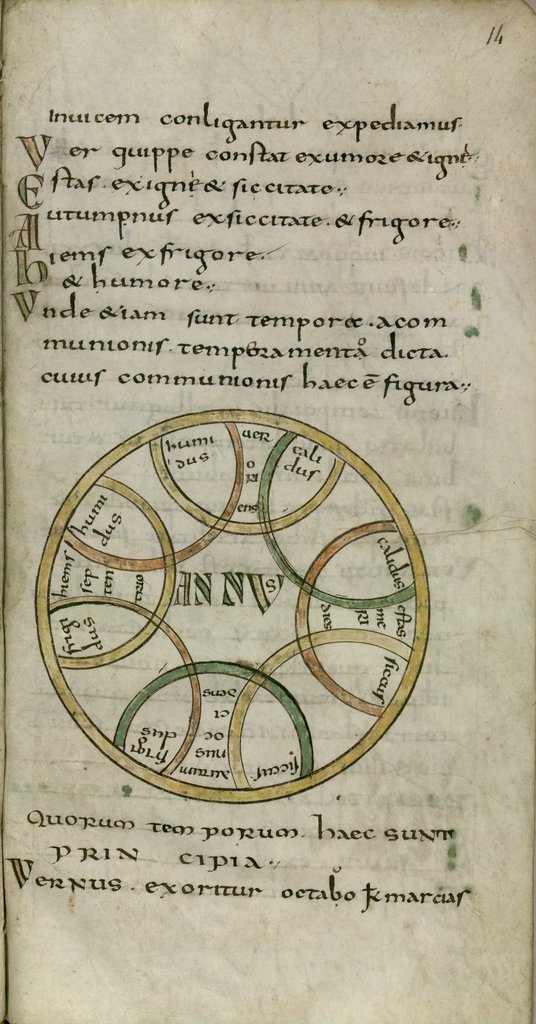 14
Inuicem conligantur expediamus.
Ver quippe constat exumore & igne
Estas. exigne & siccitate.
Autumpnus exsiccitate. & frigore.
hiems exfrigore.
& humore.
Unde &iam sunt temporæ. acom
munionis. temporamenta dicta.
cuius communionis haec ē figura.
humi
dus
uer
ori
ens
cali
dus
calidus
estas
me
ri
dies
siccus
siccus
autum
nus
oc
ci
dens
frigi
dus
frigi
dus
hiems
sep
ten
humi
dus
ANNVS
Quorum temporum. haec sunt
PRIN CIPIA.
Vernus. exoritur octabo kł marcias